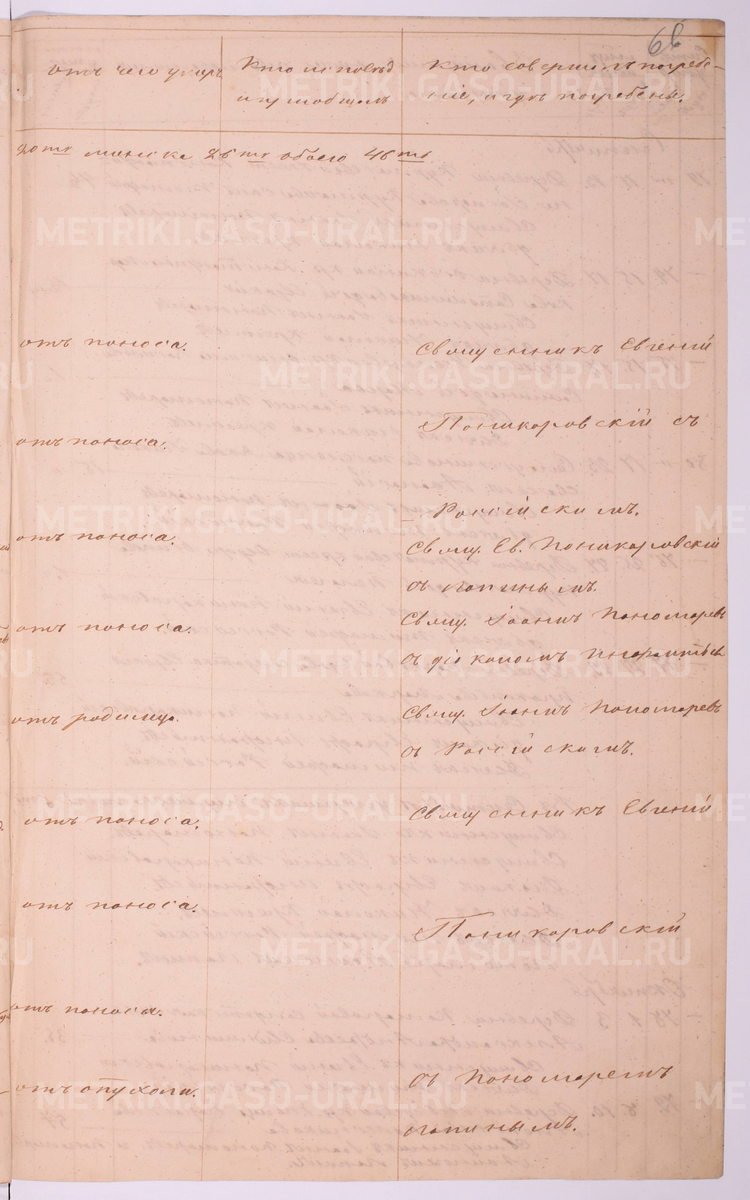 68
отъ чего умеръ
Кто исповѣд
и пріобщалъ
Кто совершалъ погребе-
ніе, и гдѣ погребены.
20ть женска 26ть обоего 46ть
отъ поноса.
Священникъ Евгеній
Поникаровскій съ
отъ поноса.
Россійскимъ.
отъ поноса.
Свящ. Ев. Поникаровскій
съ
отъ поноса.
Свящ. Іоаннъ Пономаревъ
съ діакономъ
отъ родимца.
Свящ. Іоаннъ Пономаревъ
съ Россійскимъ.
отъ поноса.
Священникъ Евгеній
отъ поноса.
Поникаровскій
отъ поноса.
съ Пономаремъ
отъ опухоли.
METRIKI.GASO-URAL.RU